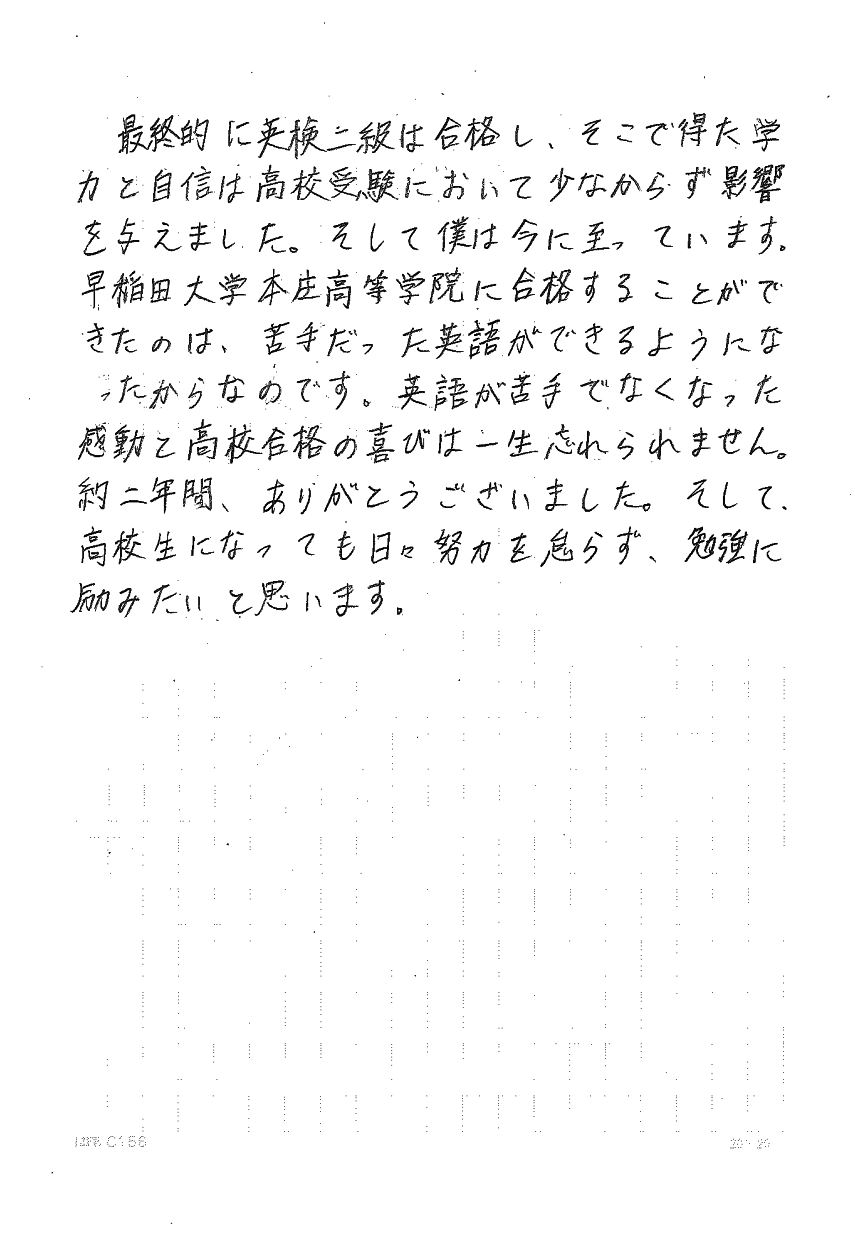 最終的に英検二級は合格し、そこで得た学
力と自信は高校受験において少なからず影響
を与えました。そして僕は今に至っています。
早稲田大学本庄高等学院に合格することがで
きたのは、苦手だった英語ができるようにな
ったからなのです。英語が苦手でなくなった
感動と高校合格の喜びは一生忘れられません。
約二年間、ありがとうございました。そして、
高校生になっても日々努力を怠らず、勉強に
励みたいと思います。
C156